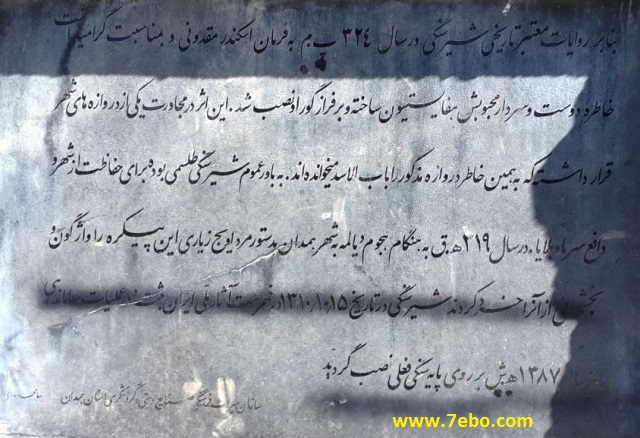 بنابر روایات معتبر تاریخی شیر سنگی در سال ۳۲۴ ب.م به فرمان اسکندر مقدونی و بمناسبت گرامیداشت
خاطره دوست و سردار محبوبش هفایستیون ساخته و بر فراز گور او نصب شد. این اثر در مجاورت یکی از دروازه های شهر
قرار داشته که به همین خاطر دروازه مذکور را باب الاسد میخوانده اند. به باور عموم شیر سنگی طلسمی بوده برای حفاظت از شهر و
دافع سرما و بلایا. در سال ۲۱۹ ه.ق به هنگام هجوم دیالمه به شهر همدان به دستور مرداویج زیاری این پیکره را واژگون و
بخشهای از آنرا خرد کردند شیر سنگی در تاریخ ۱۳۱۰/۱۰/۱۵ در فهرست آثار ملی ایران ثبت شد عملیات ساماندهی
در سال ۱۳۸۷ ه.ش بر روی پایه سنگی فعلی نصب گردید
سازمان میراث فرهنگی صنایع دستی و گردشگری استان همدان
www.7ebo.com